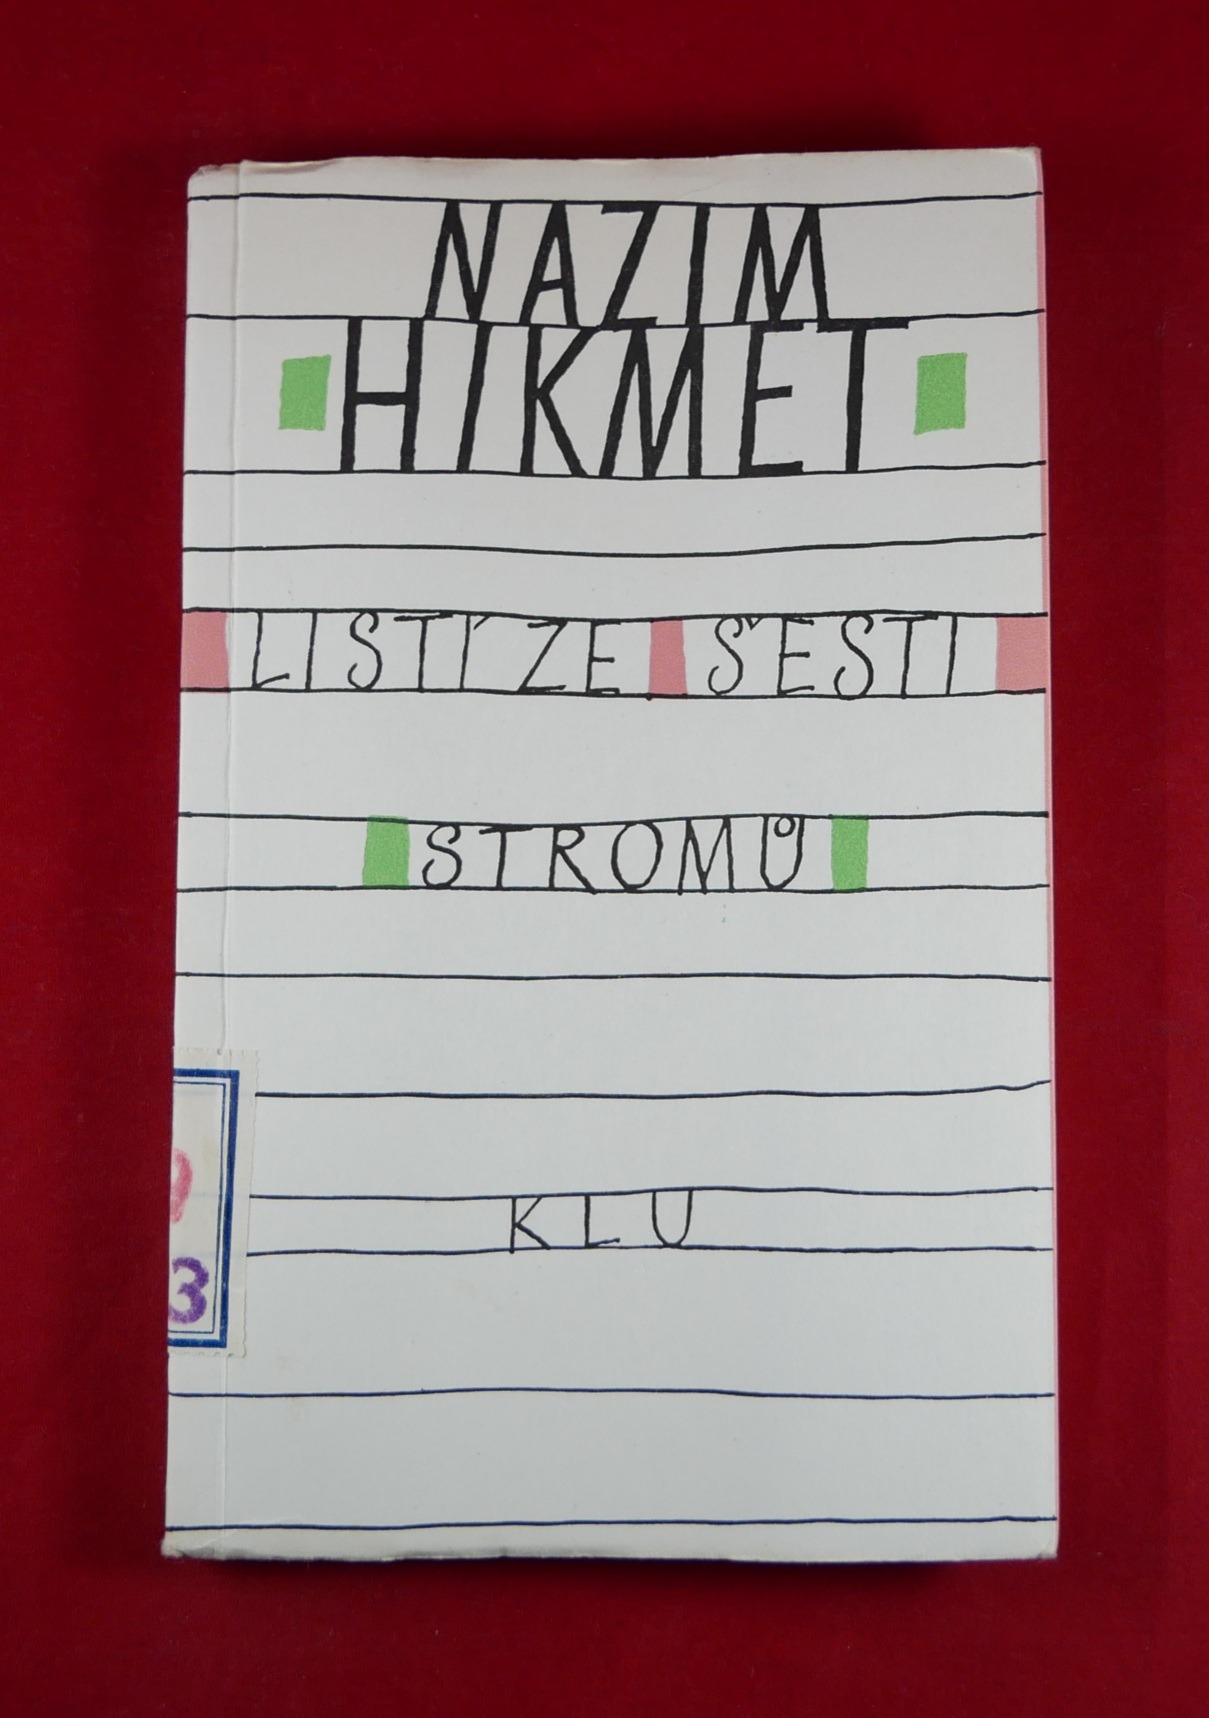 NAZIM
HIKMET
LISTÍ ZE ŠESTI
STROMŮ
KLU
3